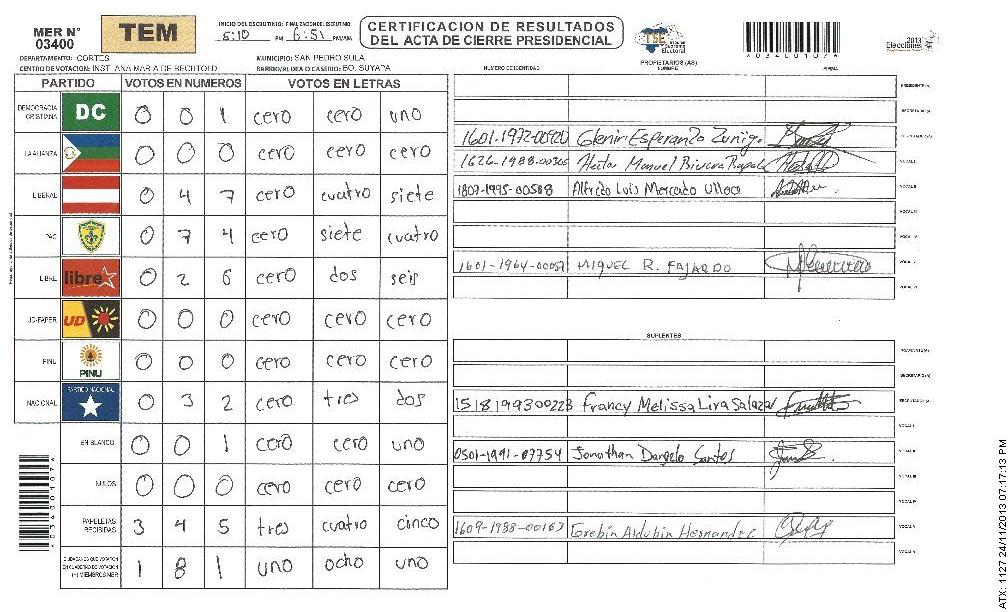 MER N° 03400
TEM
INICIO DEL ESCRUTINIO: FINALIZACION DEL ESCRUTINIO
5:10 PM 6:51 PM/AM
CERTIFICACION DE RESULTADOS
DEL ACTA DE CIERRE PRESIDENCIAL
TSE Tribunal Supremo Electoral
*03400107*
2013 Elecciones
DEPARTAMENTO: CORTES
MUNICIPIO: SAN PEDRO SULA
CENTRO DE VOTACION: INST. ANA MARIA DE BECHTOLD
BARRIO/ALDEA O CASERIO: BO. SUYAPA
NUMERO DE IDENTIDAD PROPIETARIOS (AS) NOMBRE FIRMA
PARTIDO VOTOS EN NUMEROS VOTOS EN LETRAS
DEMOCRACIA CRISTIANA DC 0 0 1 cero cero uno
LA ALIANZA 0 0 0 cero cero cero
LIBERAL 0 4 7 cero cuatro siete
PAC 0 7 4 cero siete cuatro
LIBRE libre 0 2 6 cero dos seis
UD-FAPER UD 0 0 0 cero cero cero
PINU PINU 0 0 0 cero cero cero
NACIONAL PARTIDO NACIONAL 0 3 2 cero tres dos
EN BLANCO 0 0 1 cero cero uno
NULOS 0 0 0 cero cero cero
PAPELETAS RECIBIDAS 3 4 5 tres cuatro cinco
CIUDADANOS QUE VOTARON EN CUADERNO DE VOTACION (+) MIEMBROS MER 1 8 1 uno ocho uno
PRESIDENTE(A)
SECRETARIO(A)
1601-1972-00920 Glenir Esperanza Zuniga ESCRUTADOR(A)
1626-1988-00305 Hector Manuel VOCAL I
1807-1995-00588 Alfredo Luis Mercado Ulloa VOCAL II
VOCAL III
VOCAL IV
1601-1964-00057 MIGUEL R. FAJARDO VOCAL V
VOCAL VI
SUPLENTES
PRESIDENTE(A)
SECRETARIO(A)
1518199300223 Francy Melissa Lira Salazar ESCRUTADOR(A)
VOCAL I
0501-1991-07754 Jonathan Dangelo Santos VOCAL II
VOCAL III
VOCAL IV
1609-1988-00163 Grebin Aldubin Hernandez VOCAL V
VOCAL VI
*03400107*
ATX: 1127 24/11/2013 07:17:13 PM